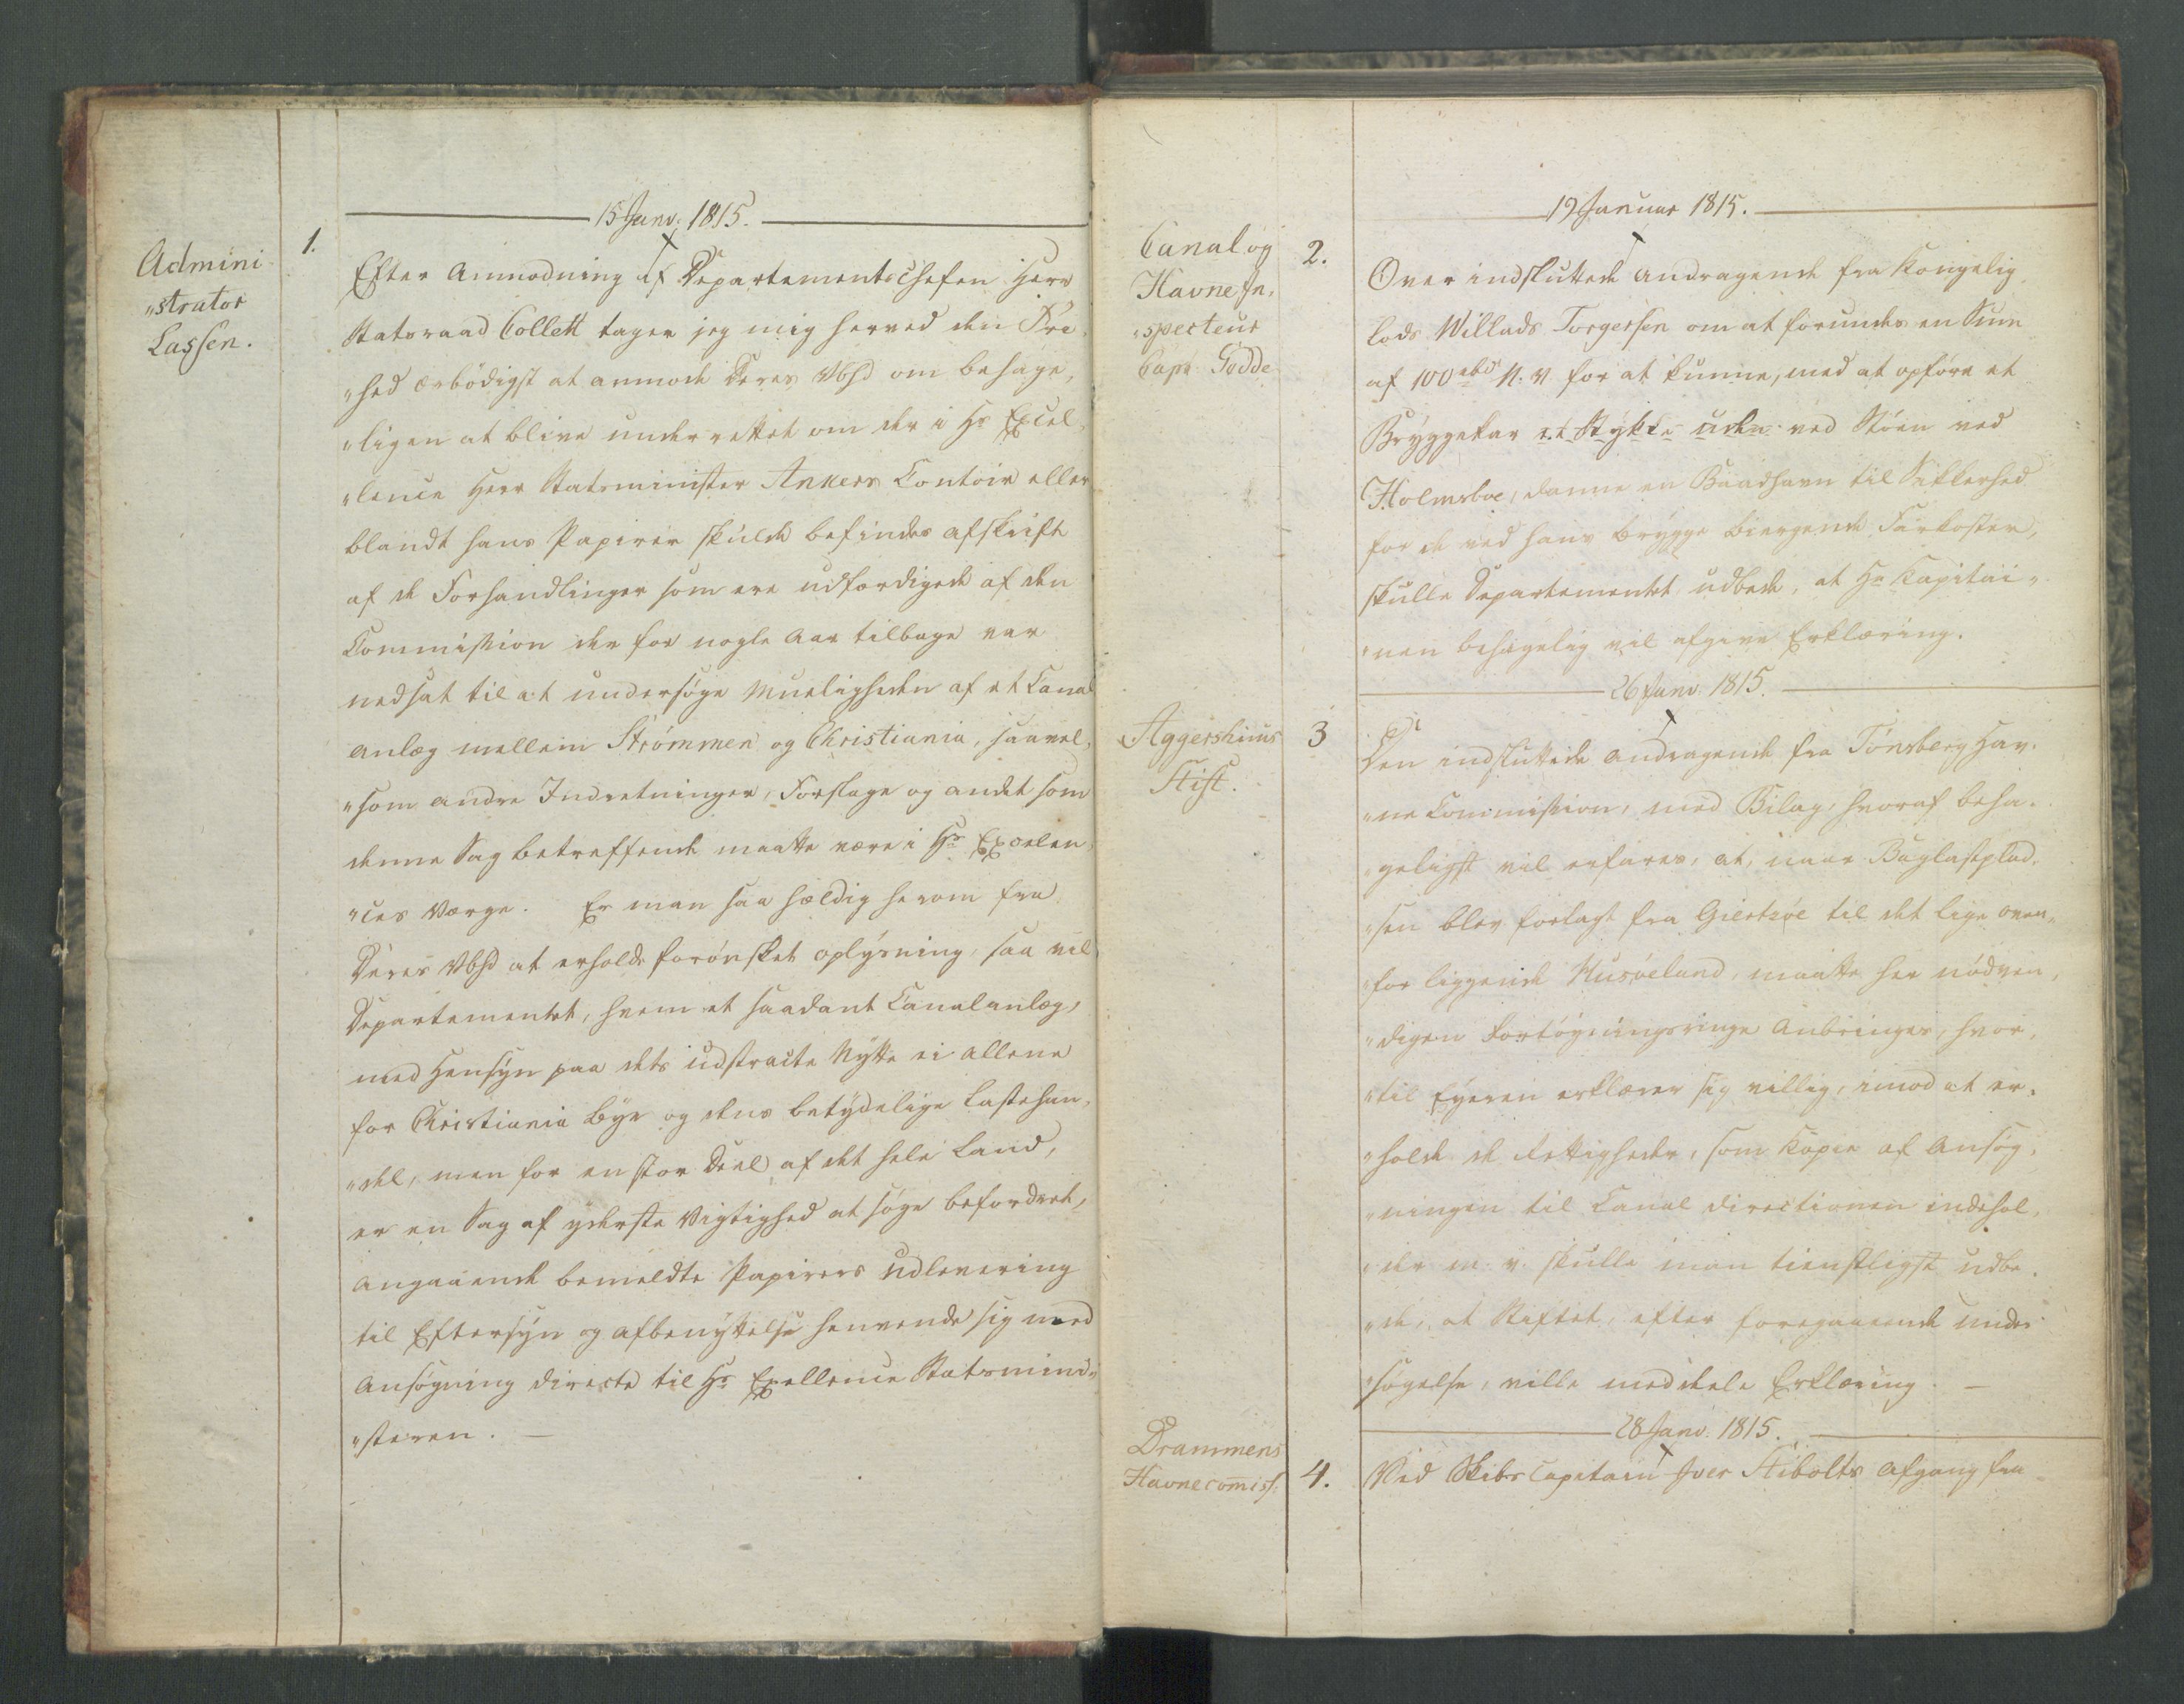 15 Janv. 1815.
Admini
"strator
Lassen.
1.
Efter Anmodning af Departementschefen Herr
Statsraad Collett tager jeg mig herved den Fri„
"hed ærbödigst at anmode Deres Vbhd om behage„
"ligen at blive underrettet om der i Hs Excel„
"lence Herr Statsminister Ankers Contoir eller
blandt hans Papirer skulde befindes afskrift
af de Forhandlinger som ere udfærdigede af den
Commission der for nogle Aar tilbage var
nedsat til at undersöge Mueligheden af et Canal
anlæg mellem Strømmen og Christiania, saavel„
"som andre Indretninger, Forslage og andet som
denne Sag betreffende maatte være i Hs Excelen„
"ces Værge. Er man saa heldig herom fra
Deres Vbhd at erholde forönsket oplysning, saa vil
Departementet, hvem et saadant Canalanlæg,
med Hensyn paa dets udstracte Nytte ei allene
for Christiania Bye og dens betydelige Lastehan„
"del, men for en stor Deel af det hele Land,
er en Sag af yderste Vigtighed at söge befordret,
angaaende bemeldte Papirers Udlevering
til Eftersyn og afbenyttelse henvende sig med
Ansögning directe til Hs Exellence Statsmini„
"steren. —
19 Januar 1815.
Canal og
Havne In„
"specteur
Capt. Gedde
2.
Over indsluttede andragende fra Kongelig
Lods Willads Torgersen om at forundes en Sum
af 100 rbd N. V. for at kunne, med at opföre et
Bryggekar et Stykke uden ved Stöen ved
Holmsboe, danne en Baadhavn til Sikkerhed
for de ved hans brygge biergende Farkoster,
skulle Departementet udbede, at Hr Kapitai„
"nen behagelig vil afgive Erklæring.
26 Janv. 1815.
Aggershuus
Stift.
3
Den indsluttede andragende fra Tönsberg Hav„
"ne Commission, med Bilag, hvoraf beha„
"geligst vil erfares, at, naar Baglastplad„
"sen blev forlagt fra Giertsöe til det lige oven„
"for liggende Husöeland, maatte her nödven„
"digen Fortöyningsringe Anbringes, hvor„
"til Eyeren erklærer sig villig, imod at er„
"holde de Rettigheder, som Kopie af Ansög„
"ningen til Canal Directionen indehol„
"der m. v. skulle man tienstligst udbe„
"de, at Stiftet, efter foregaaende under
"sögelse, ville meddele Erklæring. —
28 Janv. 1815.
Drammens
Havnecomiss:
4.
Ved Skibscapitain Iver Stibolts Afgang fra